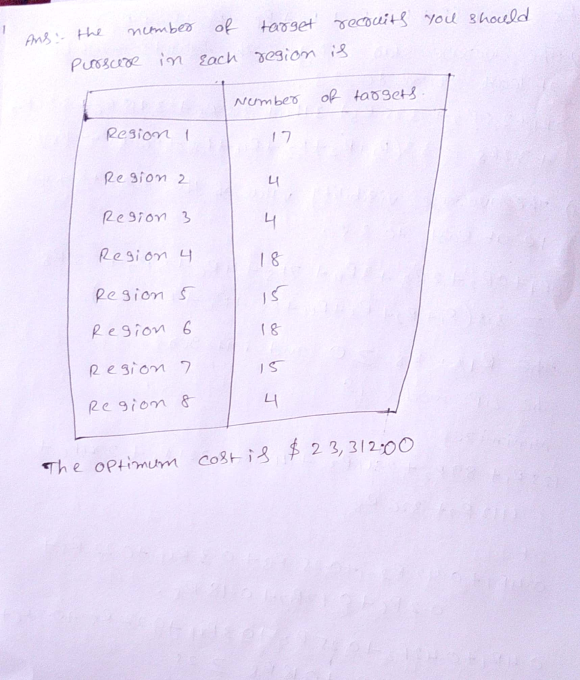 Ans:- the number of target recruits you should
Purscue in each region is
Number of targets.
Region 1 17
Region 2 4
Region 3 4
Region 4 18
Region 5 15
Region 6 18
Region 7 15
Region 8 4
The optimum cost is $ 23,312.00